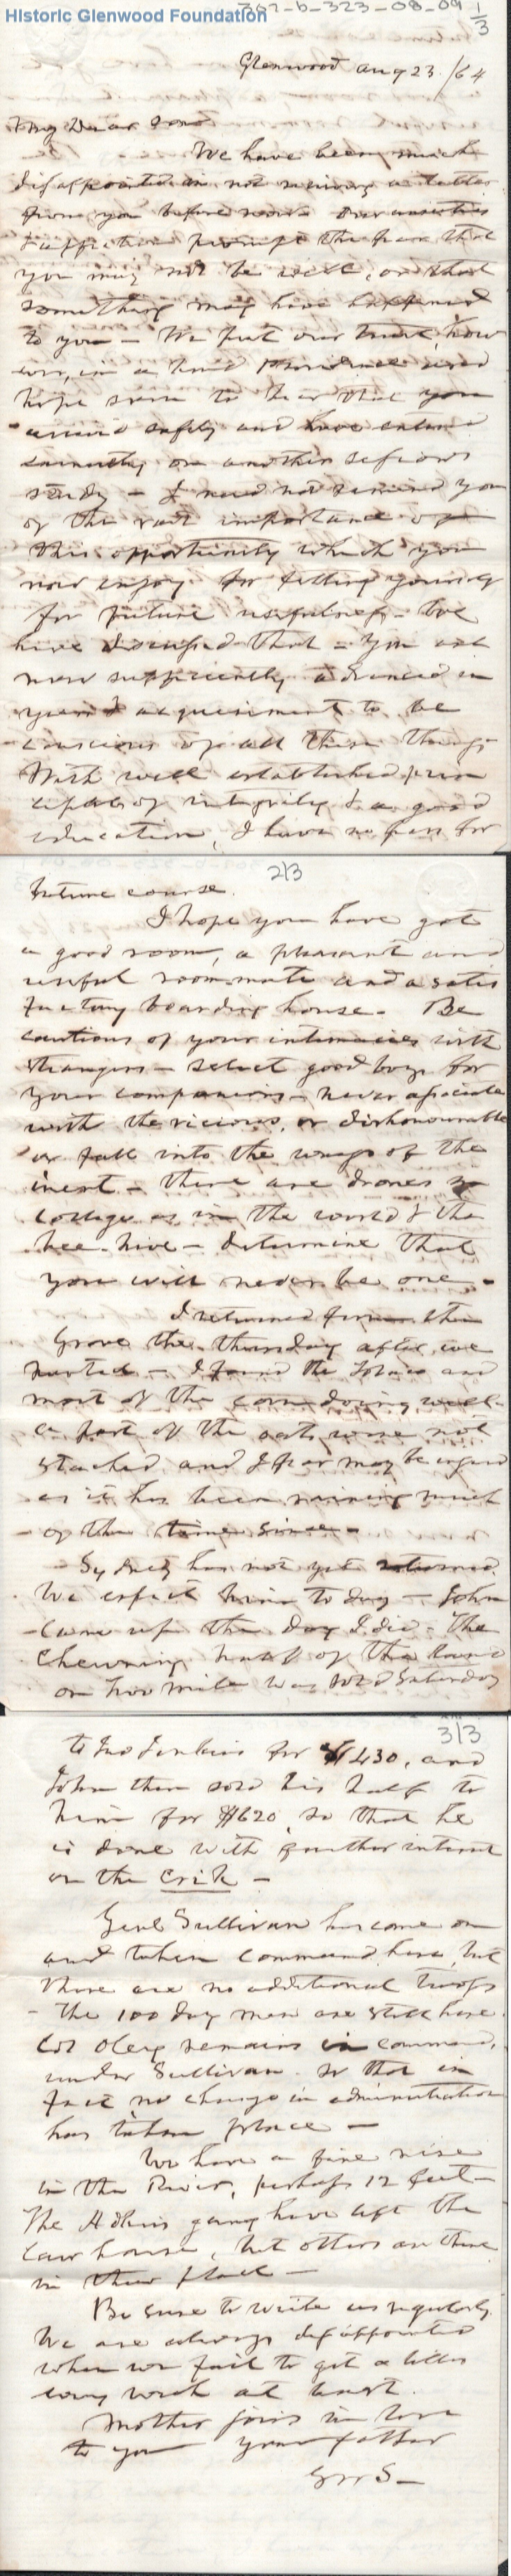 Historic Glenwood Foundation
302-b-323-08-09 1/3
Glenwood Aug 23 /64
My Dear Son
We have been much
disappointed in not receiving a letter
from you before now. Our anxieties
& affection prompt the fear that
you may not be well, or that
something may have happened
to you – We put our trust, how
ever, in a kind Providence and
hope soon to hear that you
arrived safely and have entered
earnestly on another sessions
study – I need not remind you
of the vast importance of
this opportunity which you
now enjoy for fitting yourself
for future usefulness. We
have discussed that – You are
now sufficiently advanced in
years & acquirement to be
conscious of all these things
With well established prin
ciples of integrity & a good
education, I have no fear for
2/3
future course.
I hope you have got
a good room, a pleasant and
useful room mate and a satis
factory boarding house – Be
cautious of your intimacies with
strangers – select good boys for
your companions – never associate
with the vicious, or dishonourable
or fall into the ways of the
inert – there are drones in
college as in the world & the
bee-hive – determine that
you will never be one –
I returned from the
Grove the Thursday after we
parted – I found the Tobacco and
most of the corn doing well –
a part of the oats were not
stacked and I fear may be injured
as it has been raining much
of the time since –
Sydney has not yet returned.
We expect him to day – John
came up the day I did – The
Chewning half of the land
on two mile was sold Saturday
3/3
to Jno Jenkins for $1430, and
John then sold his half to
him for $1620, so that he
is done with further interest
on the Crik –
Genl Sullivan has come on
and taken command here, but
there are no additional troops
– The 100 day men are still here.
Col Oley remains in command,
under Sullivan. so that in
fact no change in administration
has taken place –
We have a fine rise
in the River, perhaps 12 feet –
The Adkins gang have left the
Law house, but others are there
in their place –
Be sure to write us regularly.
We are always disappointed
when we fail to get a letter
every week at least.
Mother joins in love
to you your father
GWS –